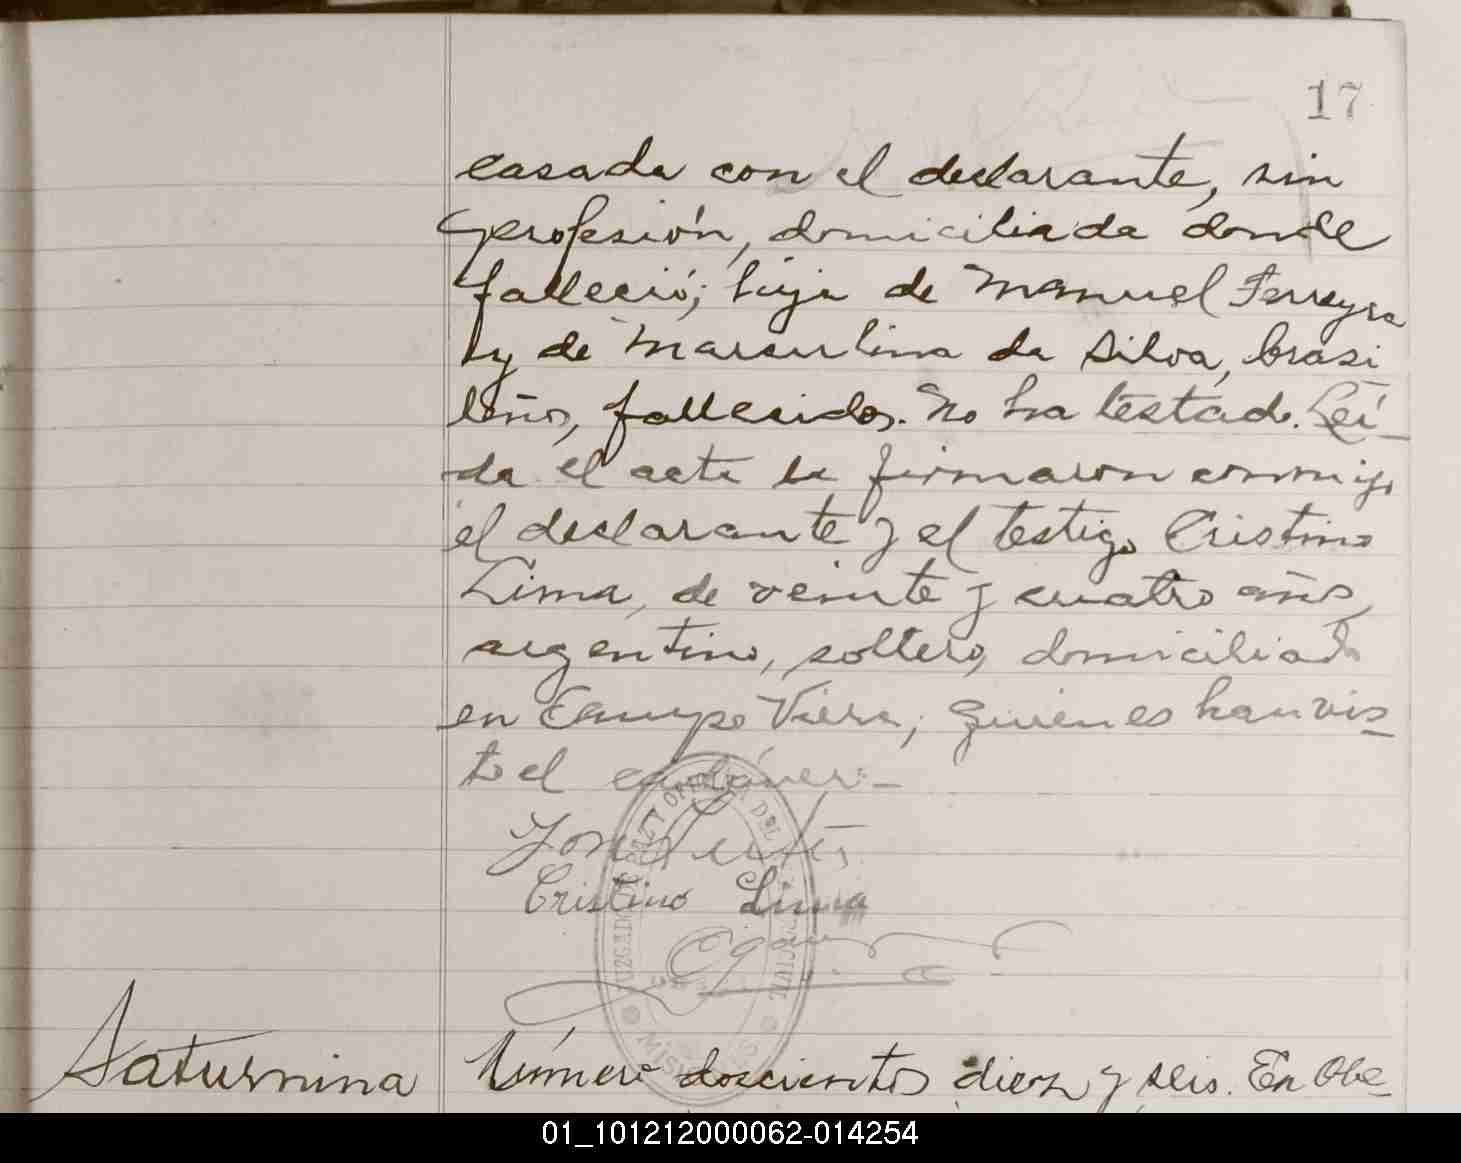 17
casada con el declarante, sin
profesión, domiciliada donde
falleció; hija de Manuel Ferreyra
y de Marculina da Silva, brasi
leños, fallecidos. No ha testado. Leí-
da el acta la firmaron conmigo
el declarante y el testigo Cristino
Lima, de veinte y cuatro años,
argentino, soltero, domiciliado
en Campo Viera; quienes han vis-
to el cadáver.-
Cristino Lima
JUZGADO DE PAZ Y OFICINA DEL
MISIONES
Saturnina
Número doscientos diez y seis. En Obe-
01_101212000062-014254